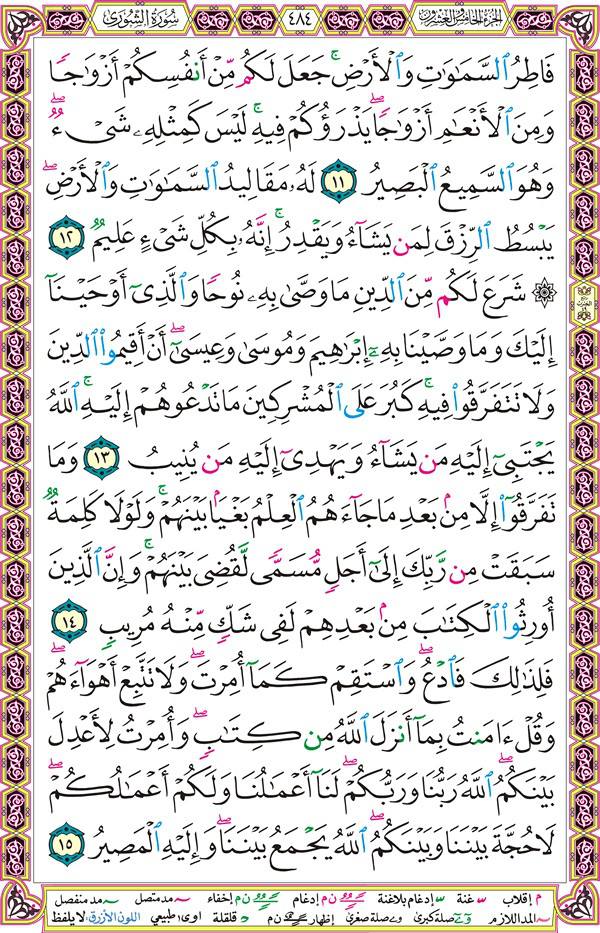 سُورَةُ الشُّورَىٰ ٤٨٤ الجزء الخامس والعشرون
فَاطِرُ السَّمَٰوَٰتِ وَالْأَرْضِ ۚ جَعَلَ لَكُم مِّنْ أَنفُسِكُمْ أَزْوَٰجًا
وَمِنَ الْأَنْعَٰمِ أَزْوَٰجًا ۖ يَذْرَؤُكُمْ فِيهِ ۚ لَيْسَ كَمِثْلِهِۦ شَىْءٌ ۖ
وَهُوَ السَّمِيعُ الْبَصِيرُ ١١ لَهُۥ مَقَالِيدُ السَّمَٰوَٰتِ وَالْأَرْضِ ۖ
يَبْسُطُ الرِّزْقَ لِمَن يَشَآءُ وَيَقْدِرُ ۚ إِنَّهُۥ بِكُلِّ شَىْءٍ عَلِيمٌ ١٢
۞ شَرَعَ لَكُم مِّنَ الدِّينِ مَا وَصَّىٰ بِهِۦ نُوحًا وَالَّذِىٓ أَوْحَيْنَآ
إِلَيْكَ وَمَا وَصَّيْنَا بِهِۦٓ إِبْرَٰهِيمَ وَمُوسَىٰ وَعِيسَىٰٓ ۖ أَنْ أَقِيمُوا۟ الدِّينَ
وَلَا تَتَفَرَّقُوا۟ فِيهِ ۚ كَبُرَ عَلَى الْمُشْرِكِينَ مَا تَدْعُوهُمْ إِلَيْهِ ۚ اللَّهُ
يَجْتَبِىٓ إِلَيْهِ مَن يَشَآءُ وَيَهْدِىٓ إِلَيْهِ مَن يُنِيبُ ١٣ وَمَا
تَفَرَّقُوٓا۟ إِلَّا مِنۢ بَعْدِ مَا جَآءَهُمُ الْعِلْمُ بَغْيًۢا بَيْنَهُمْ ۚ وَلَوْلَا كَلِمَةٌ
سَبَقَتْ مِن رَّبِّكَ إِلَىٰٓ أَجَلٍ مُّسَمًّى لَّقُضِىَ بَيْنَهُمْ ۚ وَإِنَّ الَّذِينَ
أُورِثُوا۟ الْكِتَٰبَ مِنۢ بَعْدِهِمْ لَفِى شَكٍّ مِّنْهُ مُرِيبٍ ١٤
فَلِذَٰلِكَ فَادْعُ ۖ وَاسْتَقِمْ كَمَآ أُمِرْتَ ۖ وَلَا تَتَّبِعْ أَهْوَآءَهُمْ ۖ
وَقُلْ ءَامَنتُ بِمَآ أَنزَلَ اللَّهُ مِن كِتَٰبٍ ۖ وَأُمِرْتُ لِأَعْدِلَ
بَيْنَكُمُ ۖ اللَّهُ رَبُّنَا وَرَبُّكُمْ ۖ لَنَآ أَعْمَٰلُنَا وَلَكُمْ أَعْمَٰلُكُمْ ۖ
لَا حُجَّةَ بَيْنَنَا وَبَيْنَكُمُ ۖ اللَّهُ يَجْمَعُ بَيْنَنَا ۖ وَإِلَيْهِ الْمَصِيرُ ١٥
م إقلاب غنة إدغام بلاغنة ن م إدغام ن م إخفاء مد متصل مد منفصل
المد اللازم صلة كبرى صلة صغرى إظهار ن م قلقلة اوى طبيعي اللون الأزرق: لا يلفظ